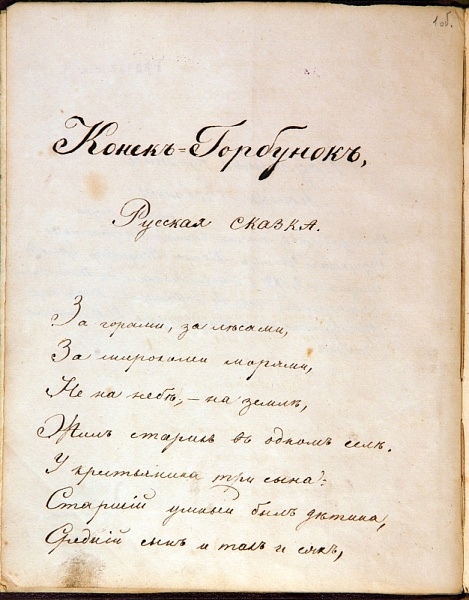 1 об.
Конекъ=Горбунокъ,
Русская сказка.
За горами, за лѣсами,
За широкими морями,
Не на небѣ, – на землѣ,
Жилъ старикъ въ одномъ селѣ.
У крестьянина три сына:
Старшій умный былъ дѣтина,
Средній сынъ и такъ и сякъ,